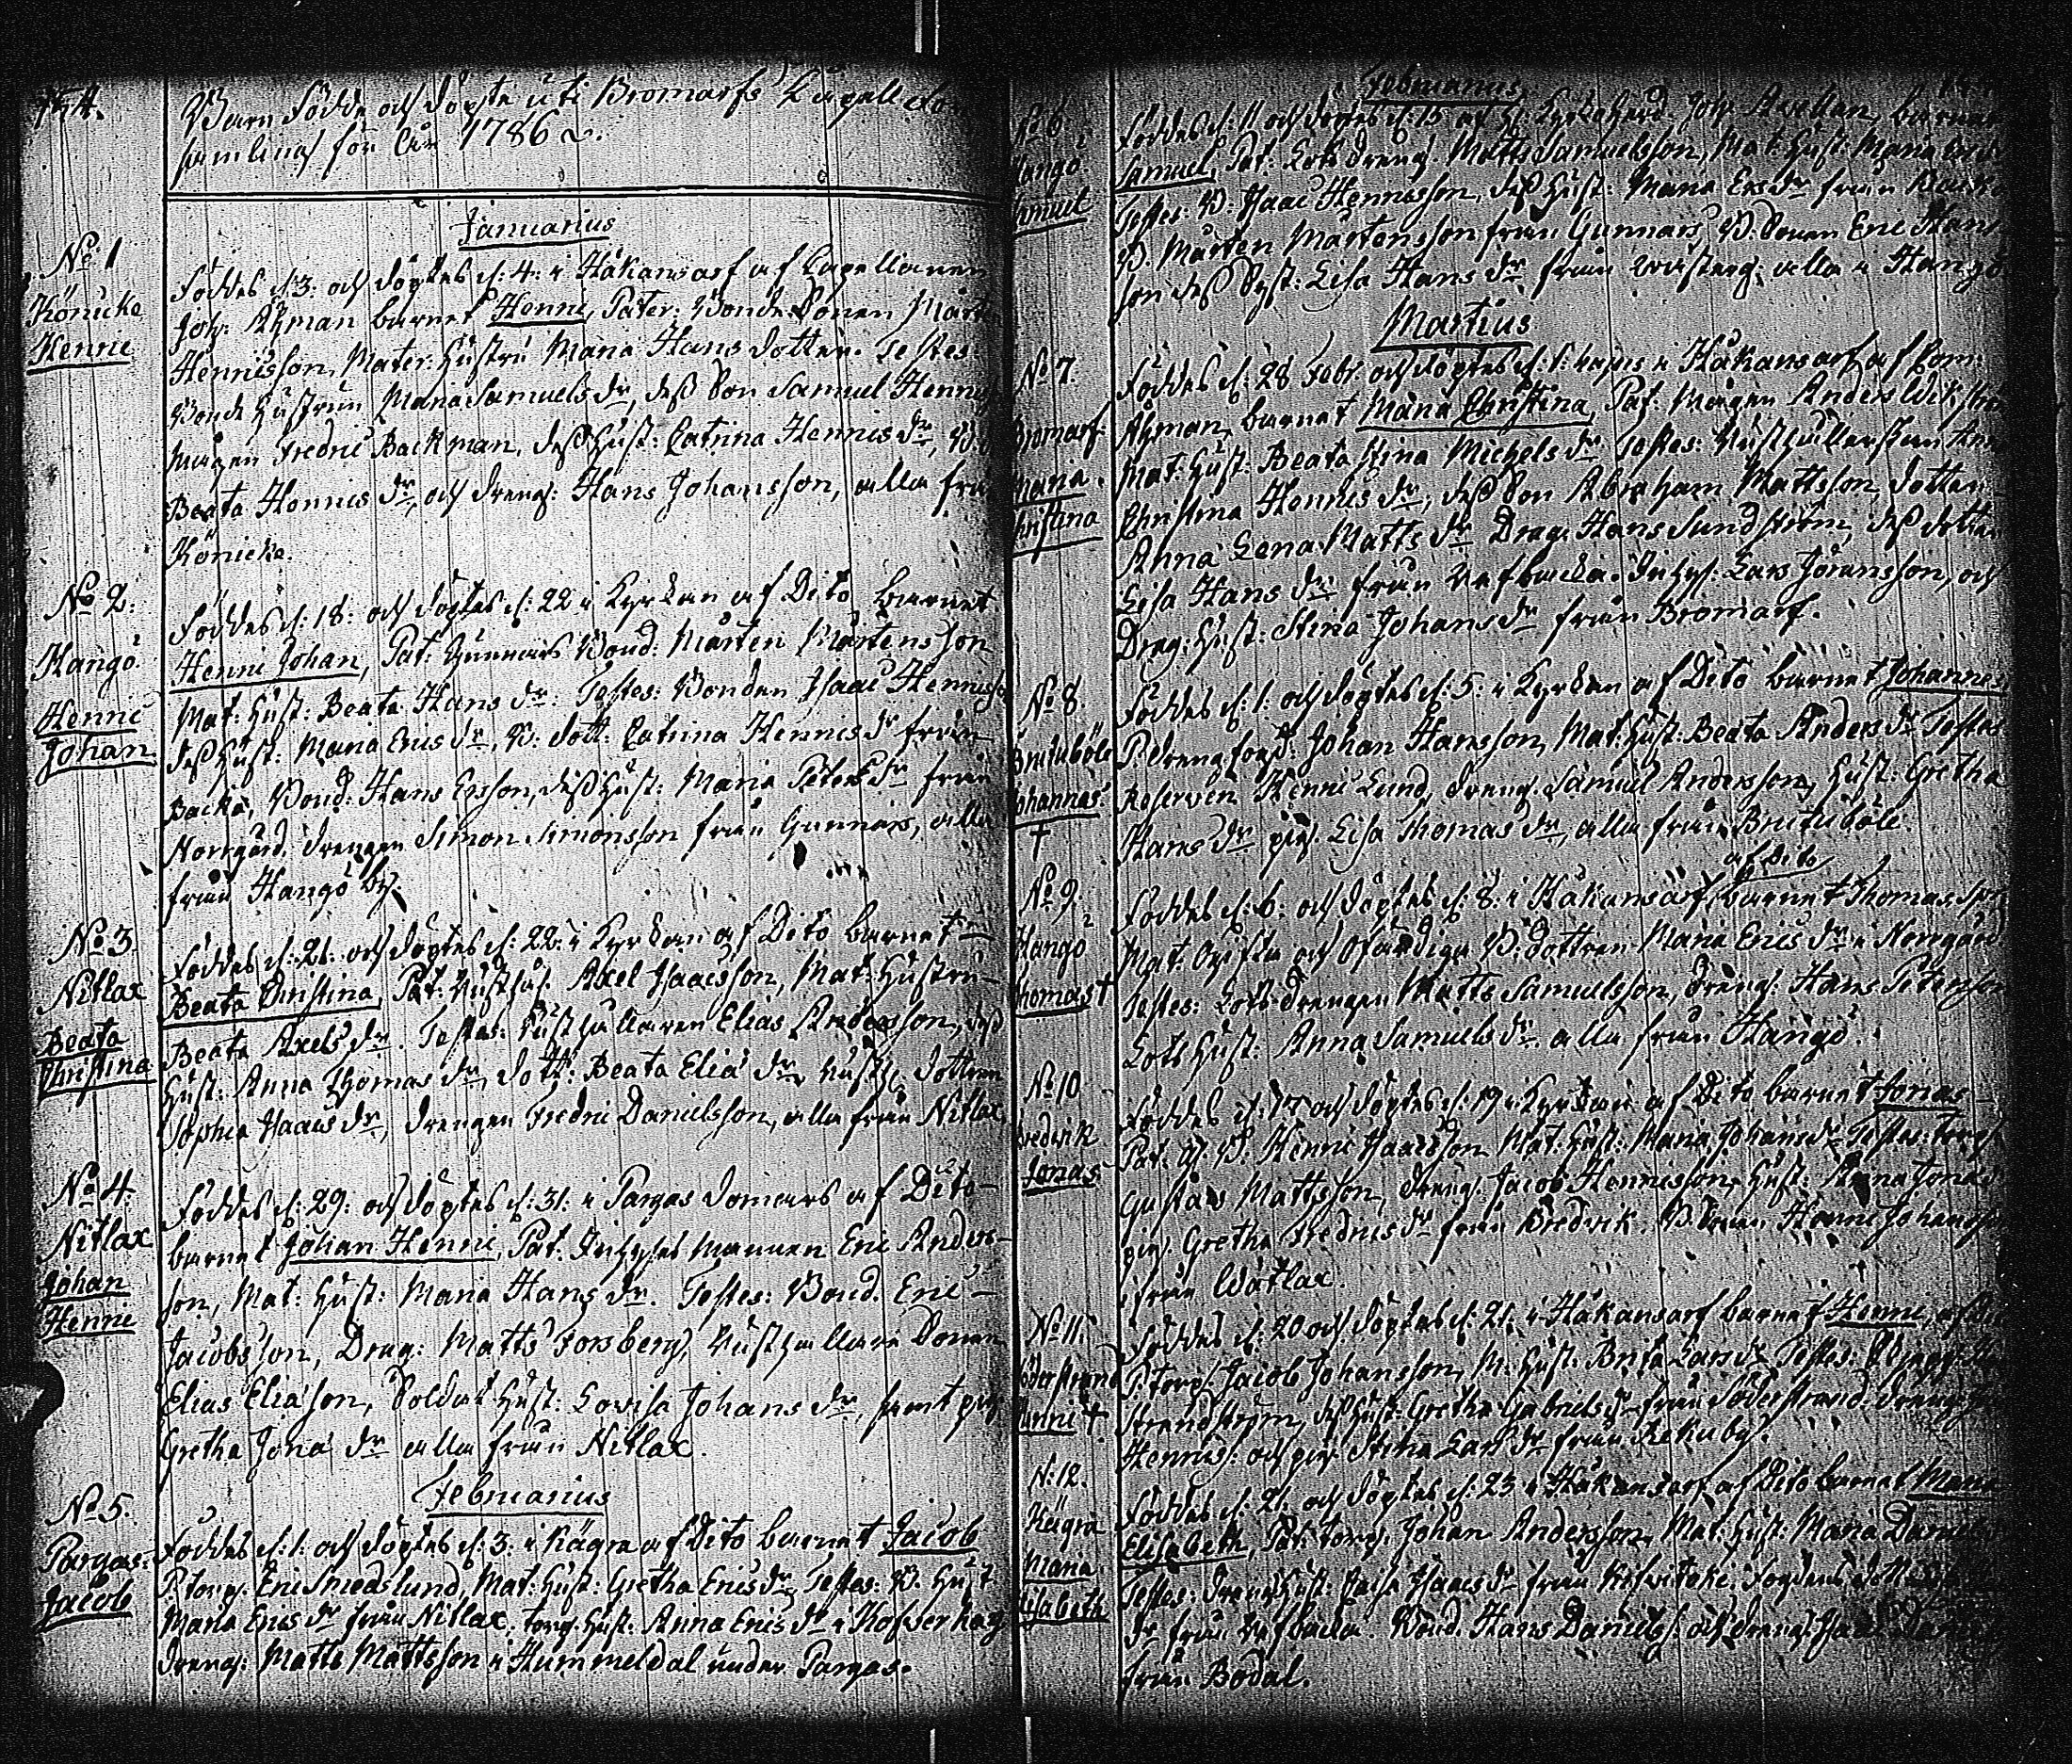 Barn Födde och döpte uti Bromarfs Capell
samling för år 1786
Januarius
No 1
Könicke
Henric
Föddes d: 3: och döptes d: 4: i Håkansarf af Capellanen
Joh: Åhman barnet Henric, Pater: Bonde Sonen Mårt
Henricsson, Mater: Hustru Maria Hans dotter. Testes:
Bonde Hustrun Maria Samuels dr, dess Son Samuel Henrics
Mågen Fredric Backman, dess Hust: Catrina Henrics dr, B:
Beata Henrics dr, och dreng: Hans Johansson, alla frå
Könicke.
No 2:
Hangö
Henric
Johan
Föddes d: 18: och döptes d: 22 i Kyrkan af Dito barnet
Henric Johan, Pat: Gunnars Bond: Mårten Mårtensson
Mat: Hust: Beata Hans dr. Testes: Bonden Isaac Henricss
dess Hust: Maria Erics dr, B: dott: Catrina Henrics dr från
Backa, Bond: Hans Ersson, dess Hust: Maria Peters dr från
Norrgård, drengen Simon Simonsson från Gunnars, alla
från Hangö by.
No 3
Nitlax
Beata
Christina
Föddes d: 21. och döptes d: 22: i Kyrkan af Dito barnet
Beata Christina, Pat: Rusth: Axel Isaacsson, Mat: Hustru
Beata Axels dr. Testes: Rusthållaren Elias Andersson, dess
Hust: Anna Thomas dr, dott: Beata Elia dr, Rusth: dottren
Sophia Isaacs dr, drengen Fredric Danielsson, alla från Nitlax
No 4.
Nitlax
Johan
Henric
Föddes d: 29: och döptes d: 31. i Pargas Domars af Dito
barnet Johan Henric, Pat. Inhyses mannen Eric Anders-
son, Mat: Hust: Maria Hans dr. Testes: Bond. Eric
Jacobsson, Drag: Matts Forsberg, Rusthållare Sonen
Elias Eliasson, Soldat Hust: Lovisa Johans dr, samt pig
Gretha Jona dr alla från Nitlax.
Februarius
No 5.
Pargas:
Jacob
Föddes d: 1. och döptes d: 3: i Kägra af Dito barnet Jacob
P. torp: Eric Smedslund, Mat: Hust: Gretha Erics dr, Testes: B. Hust
Maria Erics dr från Nitlax, torp: Hust: Anna Erics dr i Kofverhag
dreng: Matts Mattsson i Hummeldal under Pargas.
Februarius
No 6
Hangö
Samuel
Föddes d. 11 och döptes d: 15 af Hr Kyrkoherd. Joh. Axellan, barnet
Samuel, Pat: Lots dreng: Matts Samuelsson, Mat: Hust: Maria
Testes: B: Isaac Henricsson, dess Hust: Maria Ers dr från Backa
B. Mårten Mårtensson från Gunnars, B: Sonen Eric Hans
son dess Syst: Lisa Hans dr från alla i Hangö
Martius
No 7.
Bromarf
Maria
Christina
Föddes d: 28 Febr och döptes d: 1: hujus i Håkansarf af Com:
Åhman, barnet Maria Christina, Pat: Mågen Anders Wikström
Mat: Hust: Beata Stina Michels dr Testes: Rusthållerskan Anna
Christina Henrics dr, dess Son Abraham Mattsson, dotter
Anna Lena Matts dr Drag: Hans Sundström, dess dotter
Lisa Hans dr från Refbacka. Inhys: Lars Jöransson, och
Drag: Hust: Stina Johans dr från Bromarf.
No 8.
Brutuböle
Johannes
†
Föddes d: 1. och döptes d: 5: i Kyrkan af Dito barnet Johannes
P. Johan Hansson, Mat: Hust: Beata Anders dr Testes
Reserven Henric Lund, dreng: Samuel Andersson, Hust: Gretha
Hans dr pig. Lisa Thomas dr, alla från Brutuböle.
No 9.
Hangö
Thomas †
Föddes d: 6: och döptes d: 8: i Håkansarf af Dito barnet Thomas
Mat: Ogifta och Ofärdiga B: dottren Maria Erics dr i Norrgård
Testes: Lots drengen Matts Samuelsson, dreng: Hans Petersson
Lots Hust: Anna Samuels dr alla från Hangö.
No 10
Bredvik
Jonas
Föddes d: och döptes d: 19 i Kyrkan af Dito barnet Jonas
Pat: B: Henric Isaacsson Mat: Hust: Maria Johans dr Testes: torp:
Gustav Mattsson, dreng: Jacob Henricsson, Hust: Anna Jona d
pig: Gretha Fredrics dr från Bredvik. B. Sonen Henric Johansson
från Wättlax.
No 11.
Söderstrand
Henric †
Föddes d: 20 och döptes d: 21. i Håkansarf barnet Henric, af Dito
P. torp: Jacob Johansson, M: Hust: Brita Lars dr Testes:
Strandström, dess Hust: Gretha Gabriels dr från Söderstrand. dreng:
Henrics: och pig: Stina Lars dr från Rekuby.
N: 12.
Kägra
Maria
Elisabeth
Föddes d: 21. och döptes d: 23 i Håkansarf af Dito barnet Maria
Elisabeth, Pat: torp: Johan Andersson, Mat: Hust: Maria Daniels
Testes: dreng Hust: Caisa Isaacs dr från
dr från Refbacka. Bond. Hans Daniels: och dreng: Isaac
från Bodal.